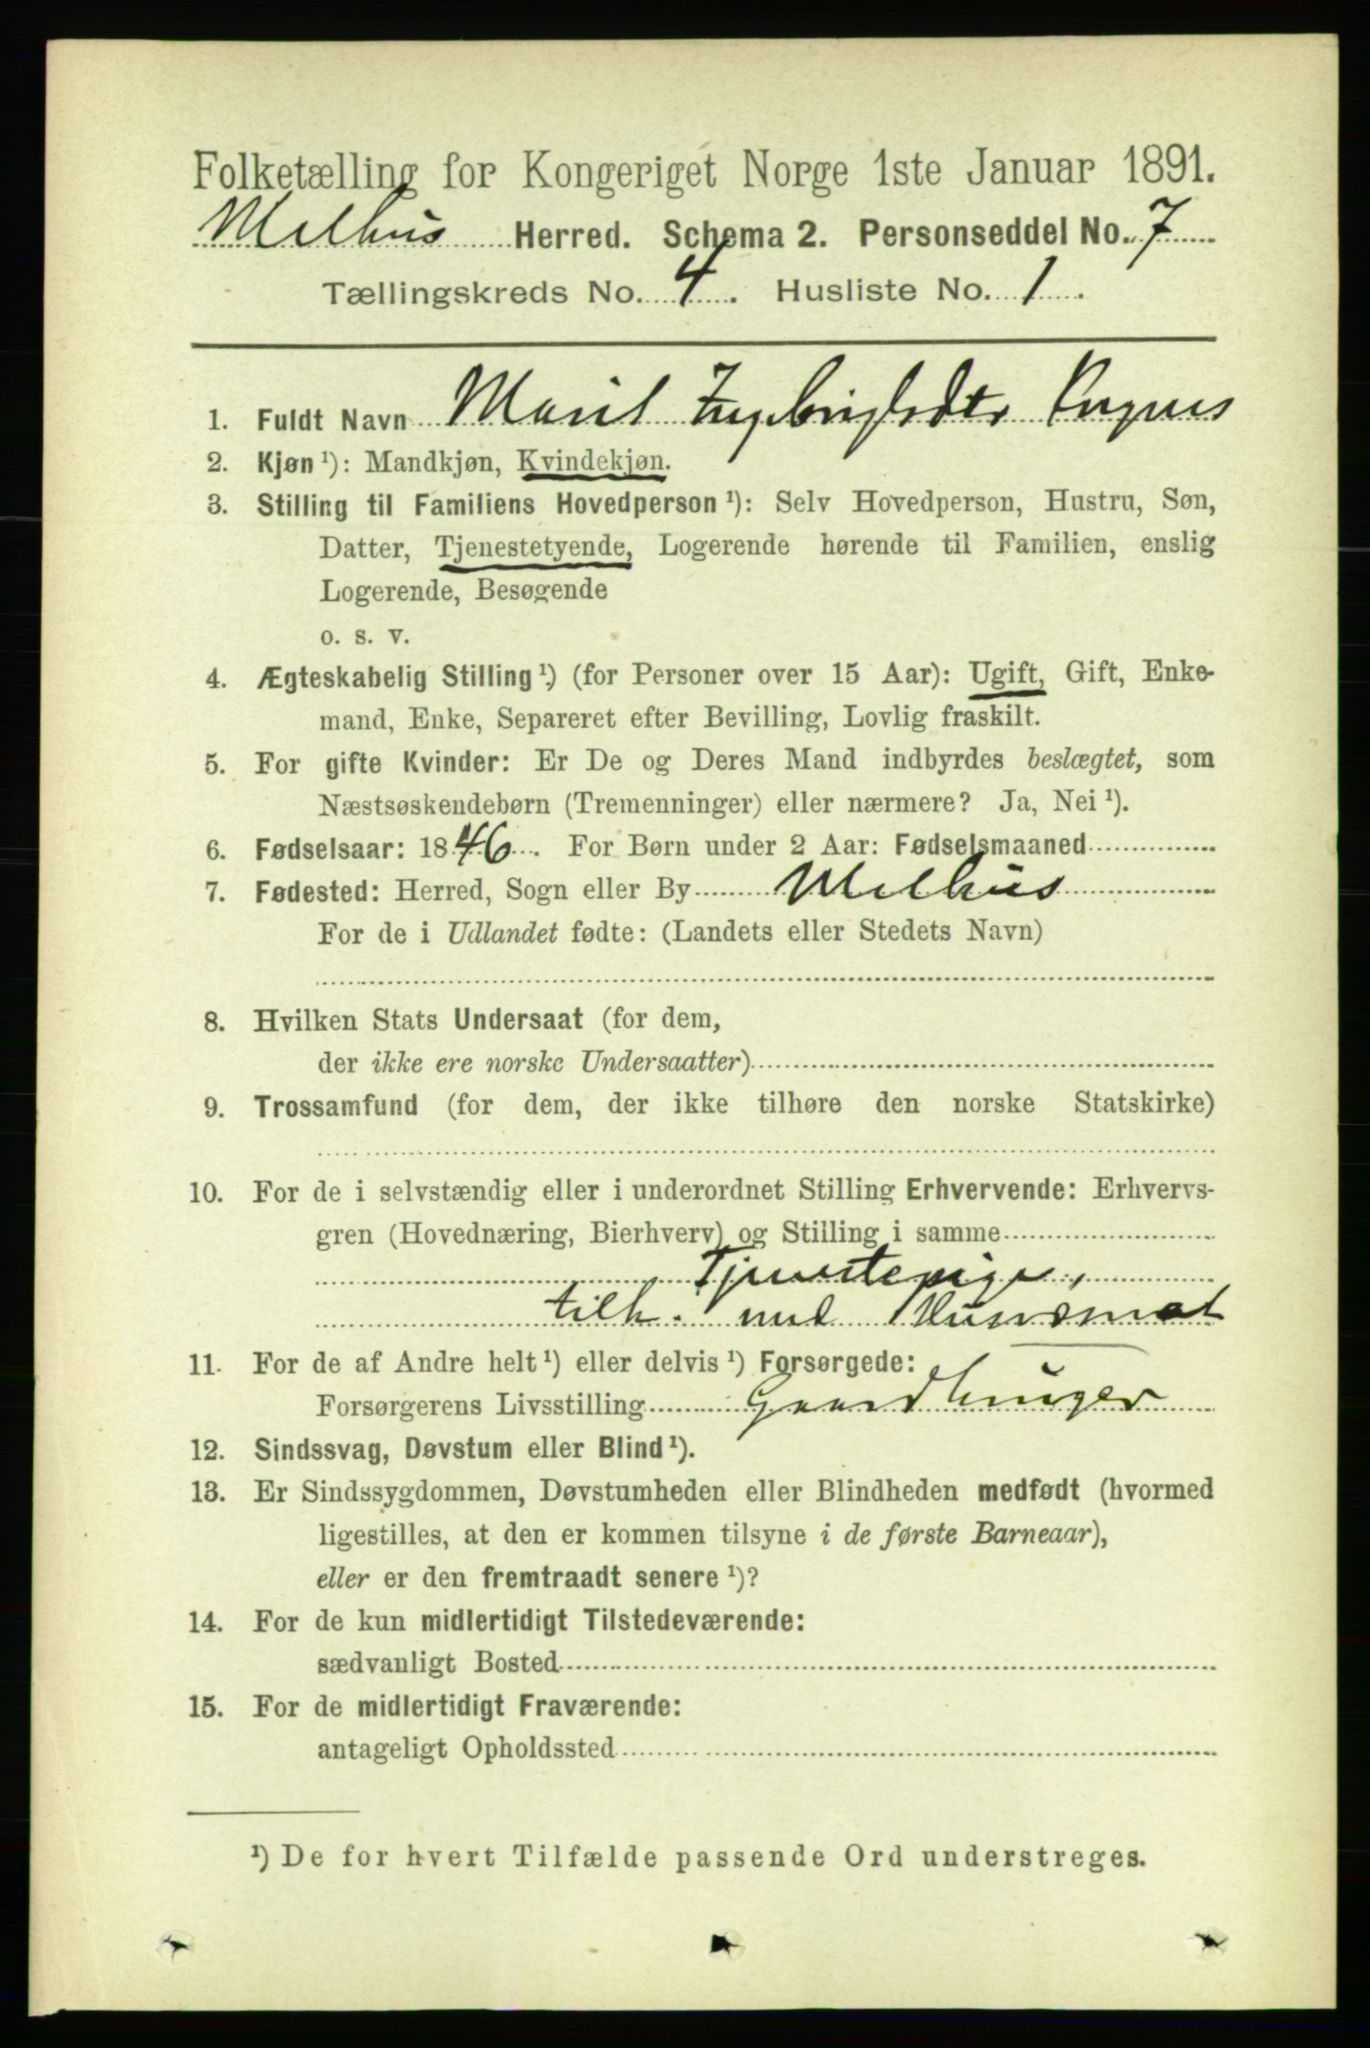 Folketælling for Kongeriget Norge 1ste Januar 1891.
Melhus Herred. Schema 2. Personseddel No. 7
Tællingskreds No. 4. Husliste No. 1.
1. Fuldt Navn Marit Ingebrigtsdtr
2. Kjøn ¹): Mandkjøn, Kvindekjøn.
3. Stilling til Familiens Hovedperson ¹): Selv Hovedperson, Hustru, Søn,
Datter, Tjenestetyende, Logerende hørende til Familien, enslig
Logerende, Besøgende
o. s. v.
4. Ægteskabelig Stilling ¹) (for Personer over 15 Aar): Ugift, Gift, Enke-
mand, Enke, Separeret efter Bevilling, Lovlig fraskilt.
5. For gifte Kvinder: Er De og Deres Mand indbyrdes beslægtet, som
Næstsøskendebørn (Tremenninger) eller nærmere? Ja, Nei ¹).
6. Fødselsaar: 1846. For Børn under 2 Aar: Fødselsmaaned
7. Fødested: Herred, Sogn eller By Melhus
For de i Udlandet fødte: (Landets eller Stedets Navn)
8. Hvilken Stats Undersaat (for dem,
der ikke ere norske Undersaatter)
9. Trossamfund (for dem, der ikke tilhøre den norske Statskirke)
10. For de i selvstændig eller i underordnet Stilling Erhvervende: Erhvervs-
gren (Hovednæring, Bierhverv) og Stilling i samme
Tjenestepige,
tilh. med
11. For de af Andre helt ¹) eller delvis ¹) Forsørgede:
Forsørgerens Livsstilling Gaardbruger
12. Sindssvag, Døvstum eller Blind ¹).
13. Er Sindssygdommen, Døvstumheden eller Blindheden medfødt (hvormed
ligestilles, at den er kommen tilsyne i de første Barneaar),
eller er den fremtraadt senere ¹)?
14. For de kun midlertidigt Tilstedeværende:
sædvanligt Bosted
15. For de midlertidigt Fraværende:
antageligt Opholdssted
¹) De for hvert Tilfælde passende Ord understreges.